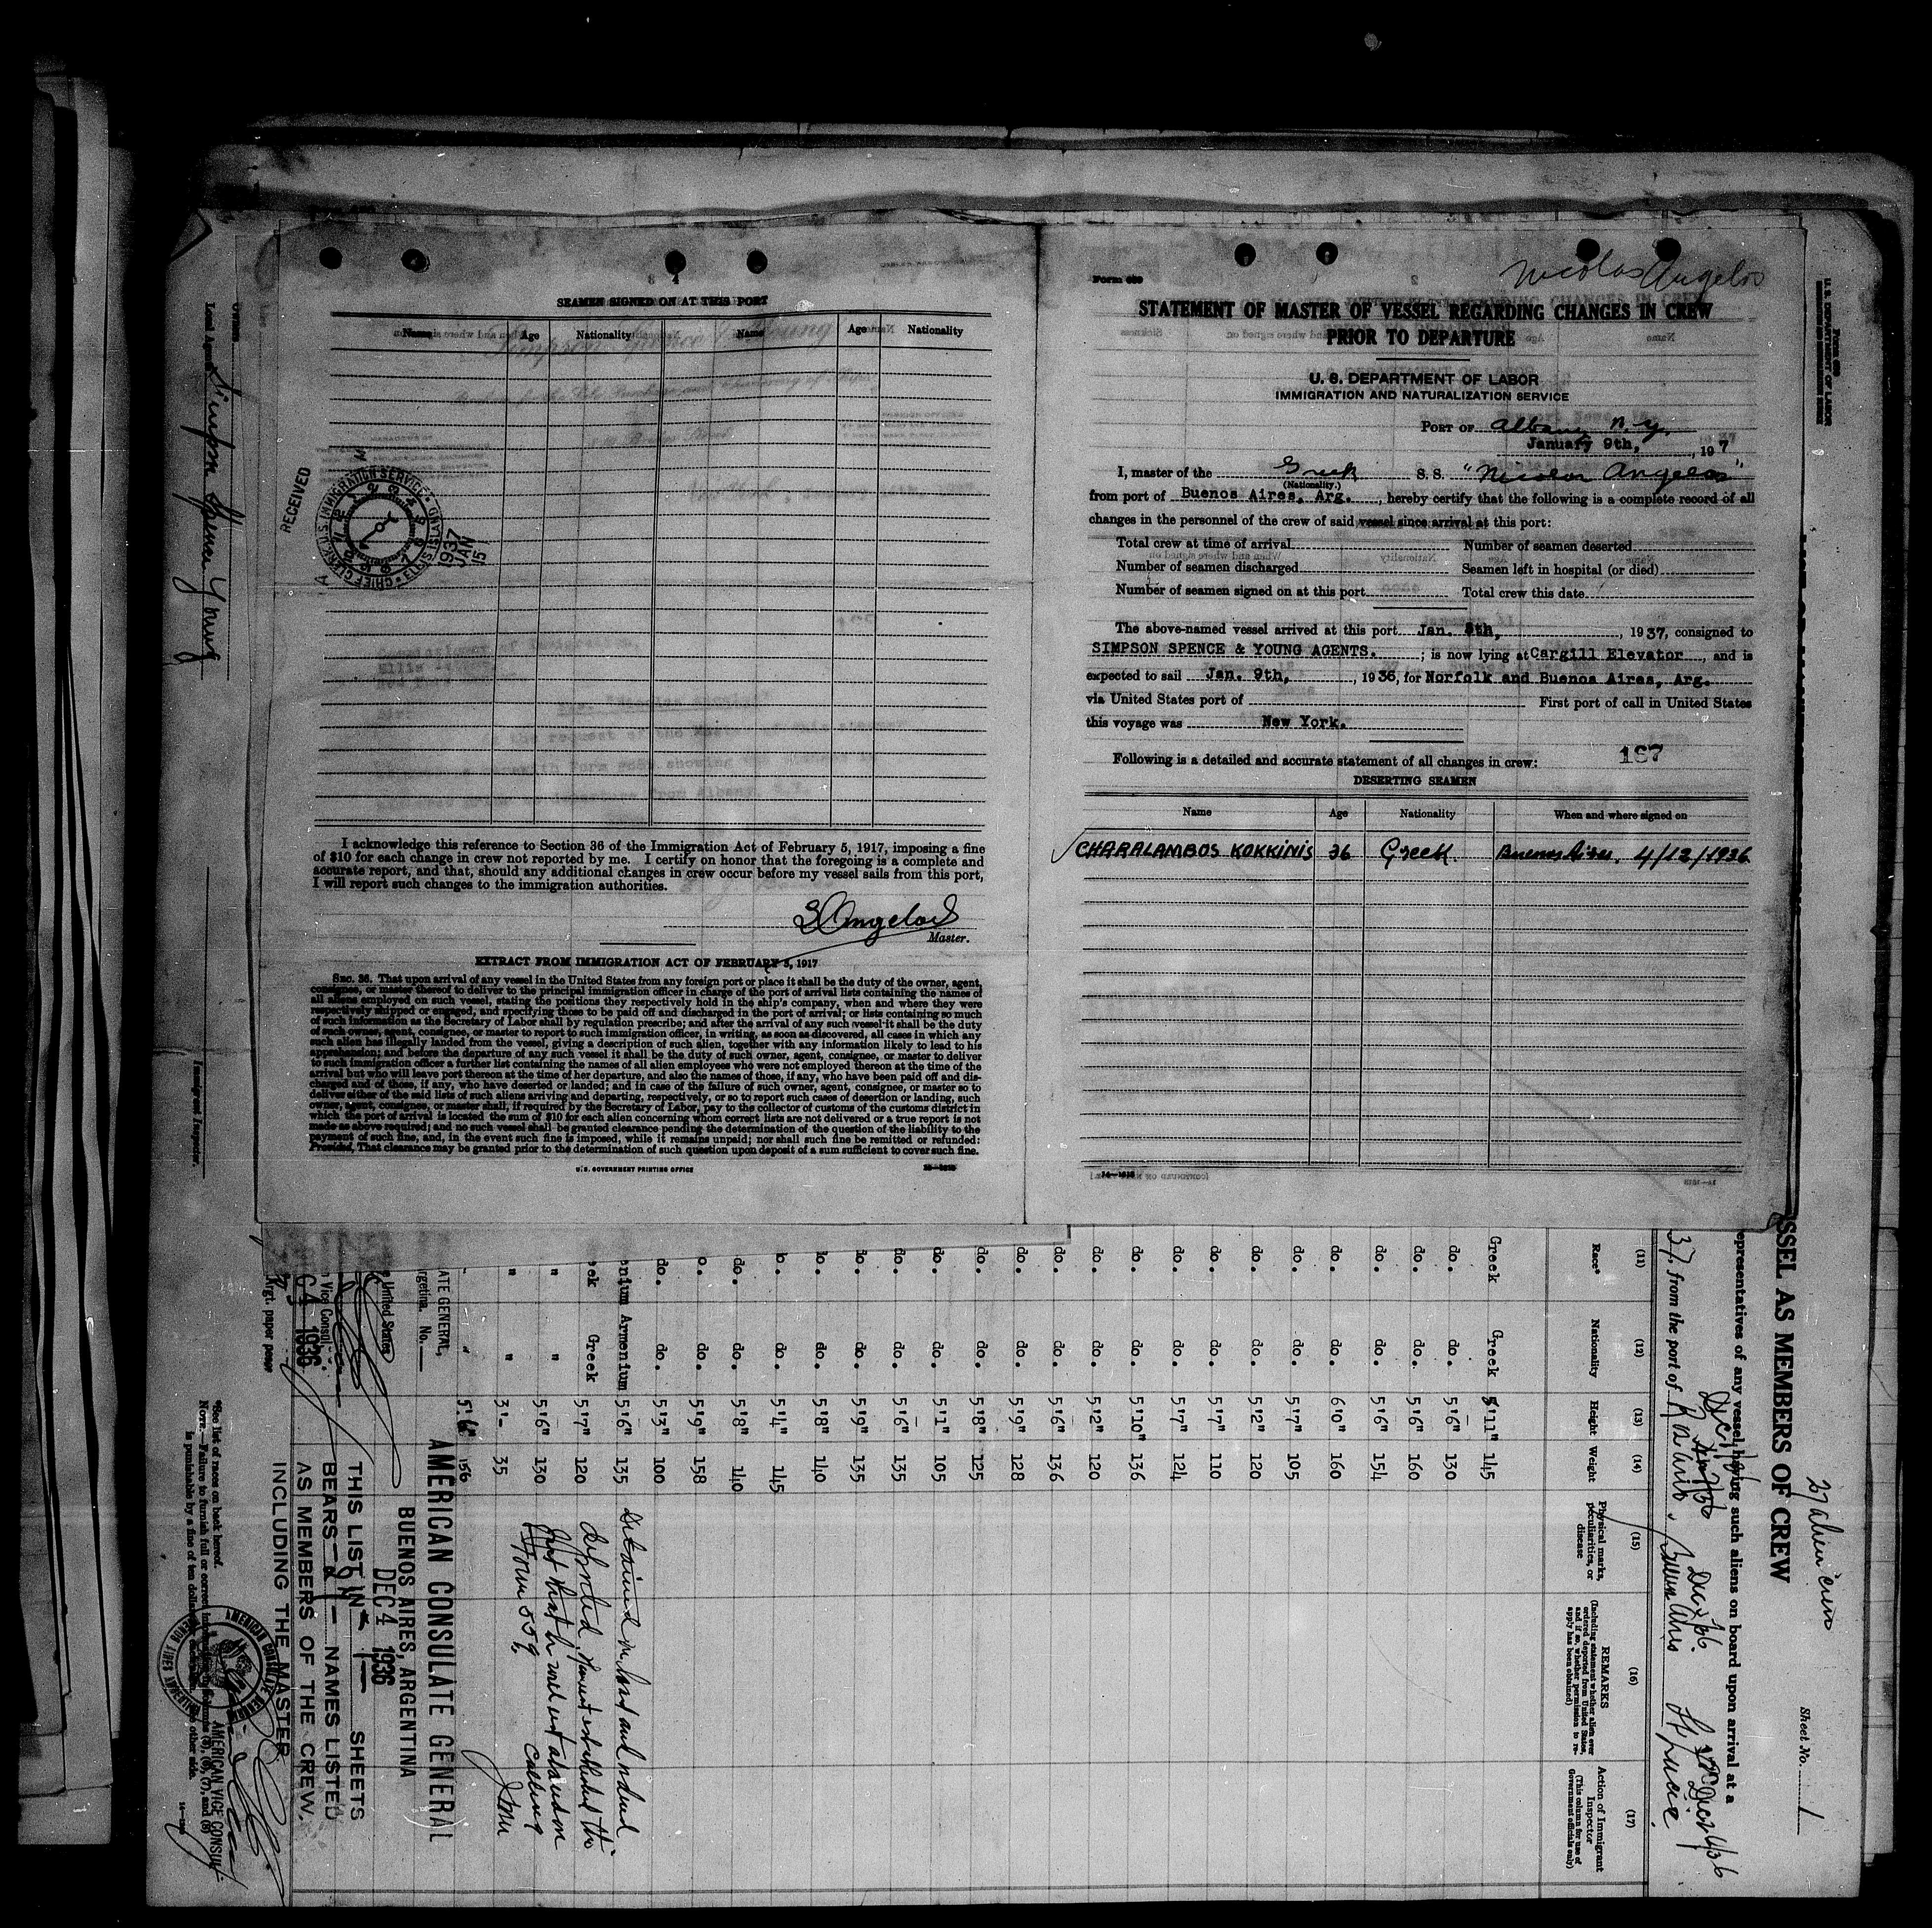 4
SEAMEN SIGNED ON AT THIS PORT
Name Age Nationality Name Age Nationality
RECEIVED
CHIEF CLERK, U.S. IMMIGRATION SERVICE
1937
JAN
15
I acknowledge this reference to Section 36 of the Immigration Act of February 5, 1917, imposing a fine
of $10 for each change in crew not reported by me. I certify on honor that the foregoing is a complete and
accurate report, and that, should any additional changes in crew occur before my vessel sails from this port,
I will report such changes to the immigration authorities.
Angelos
Master.
EXTRACT FROM IMMIGRATION ACT OF FEBRUARY 5, 1917
SEC. 36. That upon arrival of any vessel in the United States from any foreign port or place it shall be the duty of the owner, agent,
consignee, or master thereof to deliver to the principal immigration officer in charge of the port of arrival lists containing the names of
all aliens employed on such vessel, stating the positions they respectively hold in the ship's company, when and where they were
respectively shipped or engaged, and specifying those to be paid off and discharged in the port of arrival; or lists containing so much
of such information as the Secretary of Labor shall by regulation prescribe; and after the arrival of any such vessel it shall be the duty
of such owner, agent, consignee, or master to report to such immigration officer, in writing, as soon as discovered, all cases in which any
such alien has illegally landed from the vessel, giving a description of such alien, together with any information likely to lead to his
apprehension; and before the departure of any such vessel it shall be the duty of such owner, agent, consignee, or master to deliver
to such immigration officer a further list containing the names of all alien employees who were not employed thereon at the time of the
arrival but who will leave port thereon at the time of her departure, and also the names of those, if any, who have been paid off and dis-
charged and of those, if any, who have deserted or landed; and in case of the failure of such owner, agent, consignee, or master so to
deliver either of the said lists of such aliens arriving and departing, respectively, or so to report such cases of desertion or landing, such
owner, agent, consignee, or master shall, if required by the Secretary of Labor, pay to the collector of customs of the customs district in
which the port of arrival is located the sum of $10 for each alien concerning whom correct lists are not delivered or a true report is not
made as above required; and no such vessel shall be granted clearance pending the determination of the question of the liability to the
payment of such fine, and, in the event such fine is imposed, while it remains unpaid; nor shall such fine be remitted or refunded:
Provided, That clearance may be granted prior to the determination of such question upon deposit of a sum sufficient to cover such fine.
U.S. GOVERNMENT PRINTING OFFICE
Form 689
Nicolas Angelos
STATEMENT OF MASTER OF VESSEL REGARDING CHANGES IN CREW
PRIOR TO DEPARTURE
U. S. DEPARTMENT OF LABOR
IMMIGRATION AND NATURALIZATION SERVICE
PORT OF Albany N.Y.
January 9th, , 19 7
I, master of the Greek S. S. "Nicolas Angelos"
(Nationality.)
from port of Buenos Aires, Arg. , hereby certify that the following is a complete record of all
changes in the personnel of the crew of said vessel since arrival at this port:
Total crew at time of arrival Number of seamen deserted
Number of seamen discharged Seamen left in hospital (or died)
Number of seamen signed on at this port Total crew this date
The above-named vessel arrived at this port Jan. 8th, , 1937, consigned to
SIMPSON SPENCE & YOUNG AGENTS. ; is now lying at Cargill Elevator , and is
expected to sail Jan. 9th, , 1936, for Norfolk and Buenos Aires, Arg.
via United States port of First port of call in United States
this voyage was New York.
187
Following is a detailed and accurate statement of all changes in crew:
DESERTING SEAMEN
Name Age Nationality When and where signed on
CHARALAMBOS KOKKINIS 36 Greek. Buenos Aires, 4/12/1936
14—1618
Owners
Local Agents Simpson Spence Young
Immigrant Inspector.
U. S. DEPARTMENT OF LABOR
Sheet No. 1
27 alien crew
SSEL AS MEMBERS OF CREW
epresentatives of any vessel having such aliens on board upon arrival at a
37, from the port of Rosario, Buenos Aires St Lucie
(11) (12) (13) (14) (15) (16) (17)
Race* Nationality Height Weight Physical marks, peculiarities, or disease REMARKS Action of Immigrant Inspector
(Including statement whether alien ever ordered deported from United States, and if so, whether permission to re-apply has been obtained)
(This column for use of Government officials only)
Greek Greek 5'11" 145
do. do. 5'6" 130
do. do. 5'6" 160
do. do. 5'6" 154
do. do. 6'0" 160
do. do. 5'7" 105
do. do. 5'2" 120
do. do. 5'7" 110
do. do. 5'7" 124
do. do. 5'10" 136
do. do. 5'2" 120
do. do. 5'6" 136
do. do. 5'9" 128
do. do. 5'8" 125
do. do. 5'1" 105
do. do. 5'6" 135
do. do. 5'9" 135
do. do. 5'8" 140
do. do. 5'4" 145
do. do. 5'8" 140
do. do. 5'9" 158
do. do. 5'3" 100
enium Armenium 5'6" 135 Detained on board and ordered
ek Greek 5'7" 120 deported,
" " 5'6" 130
" " 3'- 35 Form 559.
" " 5'6" 156
ATE GENERAL,
rgetina. No.
AMERICAN CONSULATE GENERAL
BUENOS AIRES, ARGENTINA
DEC 4 1936
United States
Vice Consul
THIS LIST IN 1 SHEETS
BEARS NAMES LISTED
AS MEMBERS OF THE CREW.
INCLUDING THE MASTER
C 4 1936
Argt. paper pesos
AMERICAN VICE CONSUL
*See list of races on back hereof.
NOTE.—Failure to furnish full or correct
is punishable by a fine of ten dollars other side.